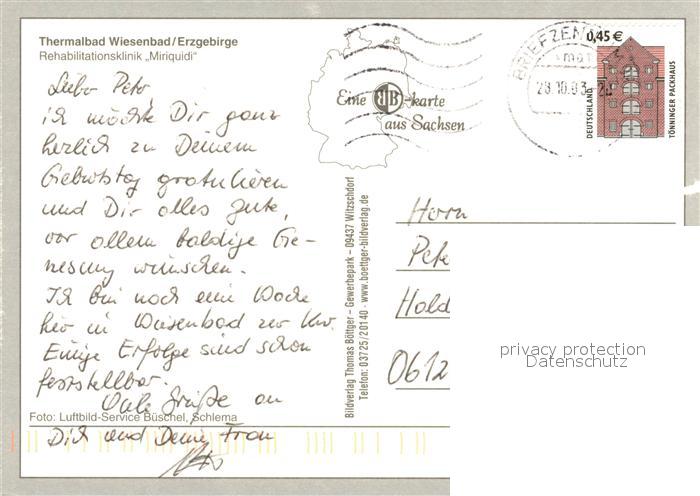 Thermalbad Wiesenbad/Erzgebirge
Rehabilitationsklinik „Miriquidi"
Lieber Peter,
ich möchte Dir ganz
herzlich zu Deinem
Geburtstag gratulieren
und Dir alles Gute,
vor allem baldige Ge-
nesung wünschen.
Ich bin noch eine Woche
hier in Wiesenbad zur Kur.
Einige Erfolge sind schon
feststellbar.
Viele Grüße an
Dich und Deine Frau
Foto: Luftbild-Service Büschel, Schlema
Eine BB-karte
aus Sachsen
Bildverlag Thomas Böttger – Gewerbepark – 09437 Witzschdorf
Telefon: 03725/20140 · www.boettger-bildverlag.de
BRIEFZEN
28.10.03
0,45 €
DEUTSCHLAND
TÖNNINGER PACKHAUS
Herrn
Pete
Hold
0612
privacy protection
Datenschutz